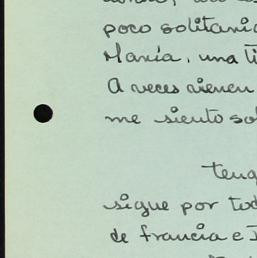 poco solitari
María, una ti
A veces vienen
me siento so
teng
sigue por tod
de francia e I